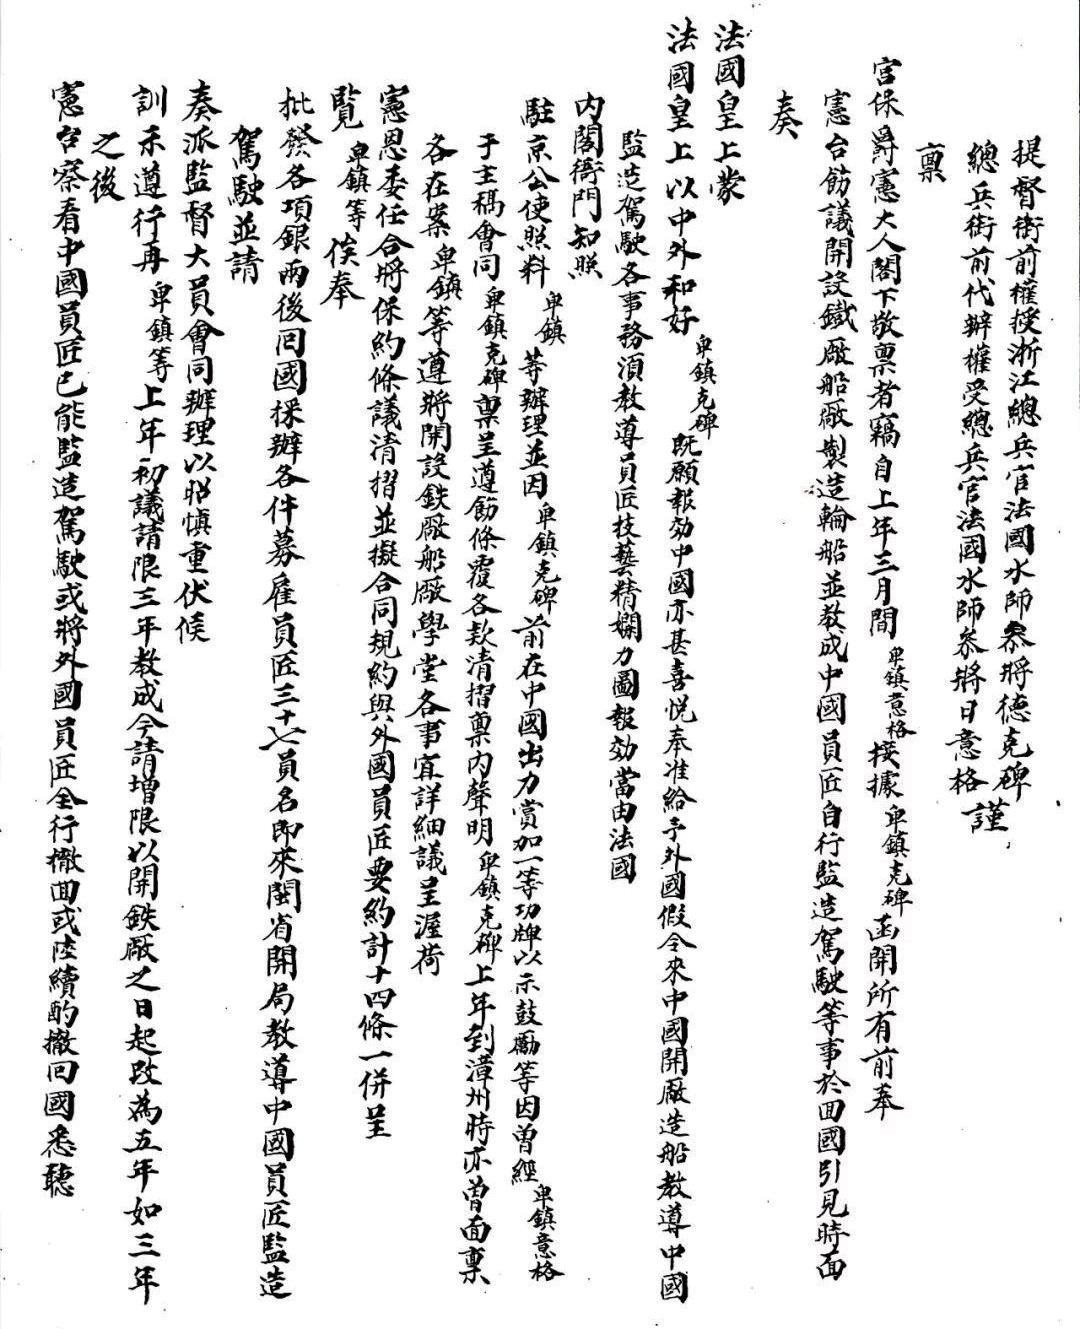 提督銜前權授浙江總兵官法國水師參將德克碑
總兵銜前代辦權受總兵官法國水師參將日意格謹
稟
宮保爵憲大人閣下敬稟者竊自上年三月間卑鎮意格接據卑鎮克碑函開所有前奉
憲台飭議開設鐵厰船厰製造輪船並教成中國員匠自行監造駕駛等事於回國引見時面
奏
法國皇上蒙
法國皇上以中外和好卑鎮克碑既願報効中國亦甚喜悅奉准給予外國假令來中國開厰造船教導中國
監造駕駛各事務湏教導員匠技藝精嫻力圖報効當由法國
內閣衙門知照
駐京公使照料卑鎮等辦理並因卑鎮克碑前在中國出力賞加一等功牌以示鼓勵等因曾經卑鎮意格
于主稿會同卑鎮克碑稟呈遵飭條覆各欵清摺稟內聲明卑鎮克碑上年到漳州時亦曾面稟
各在案卑鎮等遵將開設鉄厰船厰學堂各事宜詳細議呈渥荷
憲恩委任合將保約條議清摺並擬合同規約與外國員匠要約計十四條一併呈
覧卑鎮等俟奉
批發各項銀兩後囘國採辦各件募雇員匠三十七員名即來閩省開局教導中國員匠監造
駕駛並請
奏派監督大員會同辦理以昭慎重伏候
訓示遵行再卑鎮等上年初議請限三年教成今請增限以開鉄厰之日起改為五年如三年
之後
憲台察看中國員匠已能監造駕駛或將外國員匠全行撤囬或陸續酌撤囘國悉聽